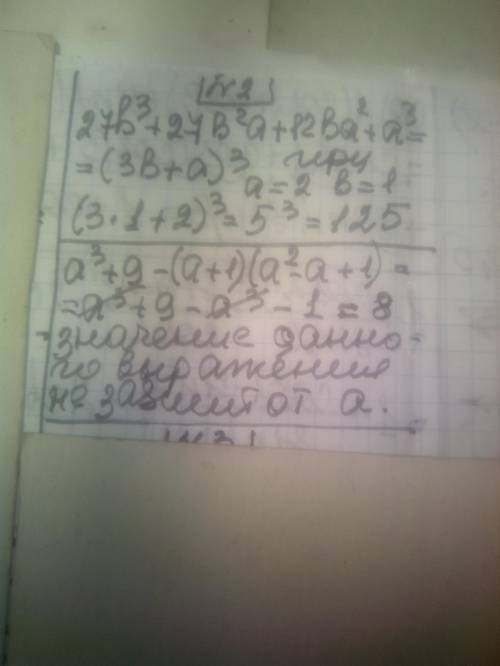 №2
27в³+27в²а+12ва²+а³=
=(3в+а)³ при
а=2 в=1
(3·1+2)³=5³=125
а³+9-(а+1)(а²-а+1)=
=а³+9-а³-1=8
значение данно-
го выражения
не зависит от а.